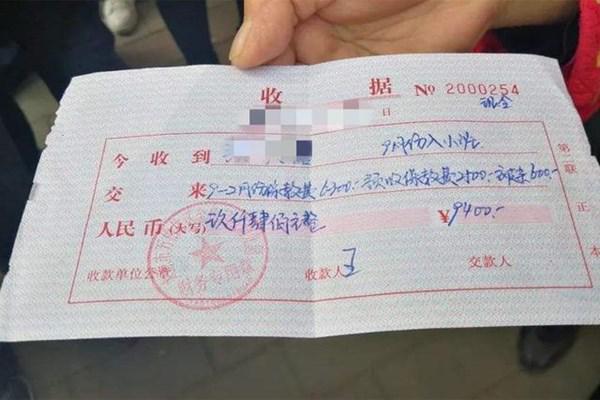 收 据 № 2000254
现金
日
今收到 9月份入小班
交来 9-2月份保教费6300.- 预收保教费2500.- 被条600.-
人民币(大写) 玖仟肆佰元整 ¥ 9400.-
收款单位公章 收款人 王 交款人
财务专用章
第二联 正本